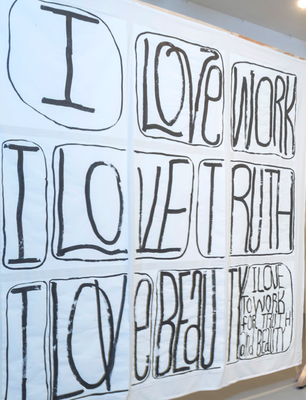 I LOVE WORK
I LOVE TRUTH
I LOVE BEAUTY
I LOVE
TO WORK
FOR TRUTH
AND BEAUTY